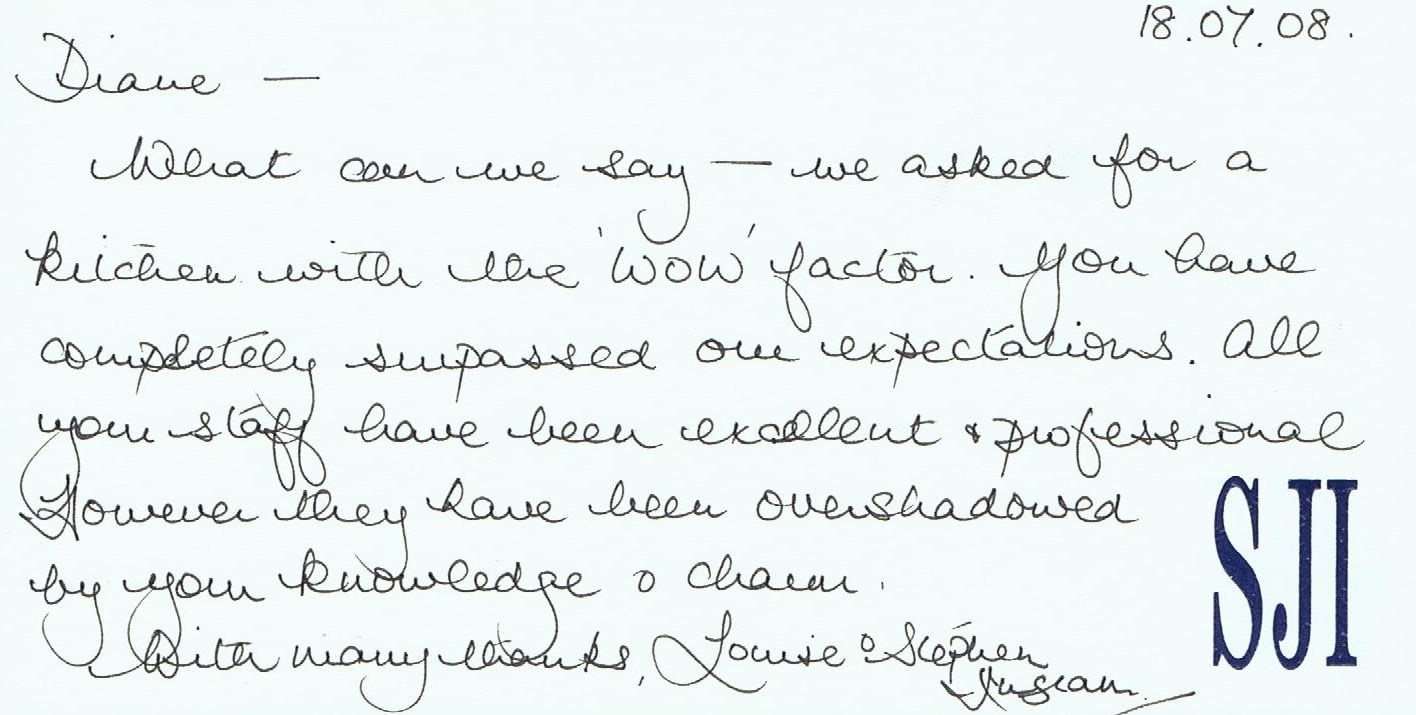 18.07.08.
Diane —
What can we say — we asked for a
kitchen with the 'WOW' factor. You have
completely surpassed our expectations. All
your staff have been excellent & professional
However they have been overshadowed
by your knowledge & charm.
With many thanks, Louise & Stephen
Ingram.
SJI